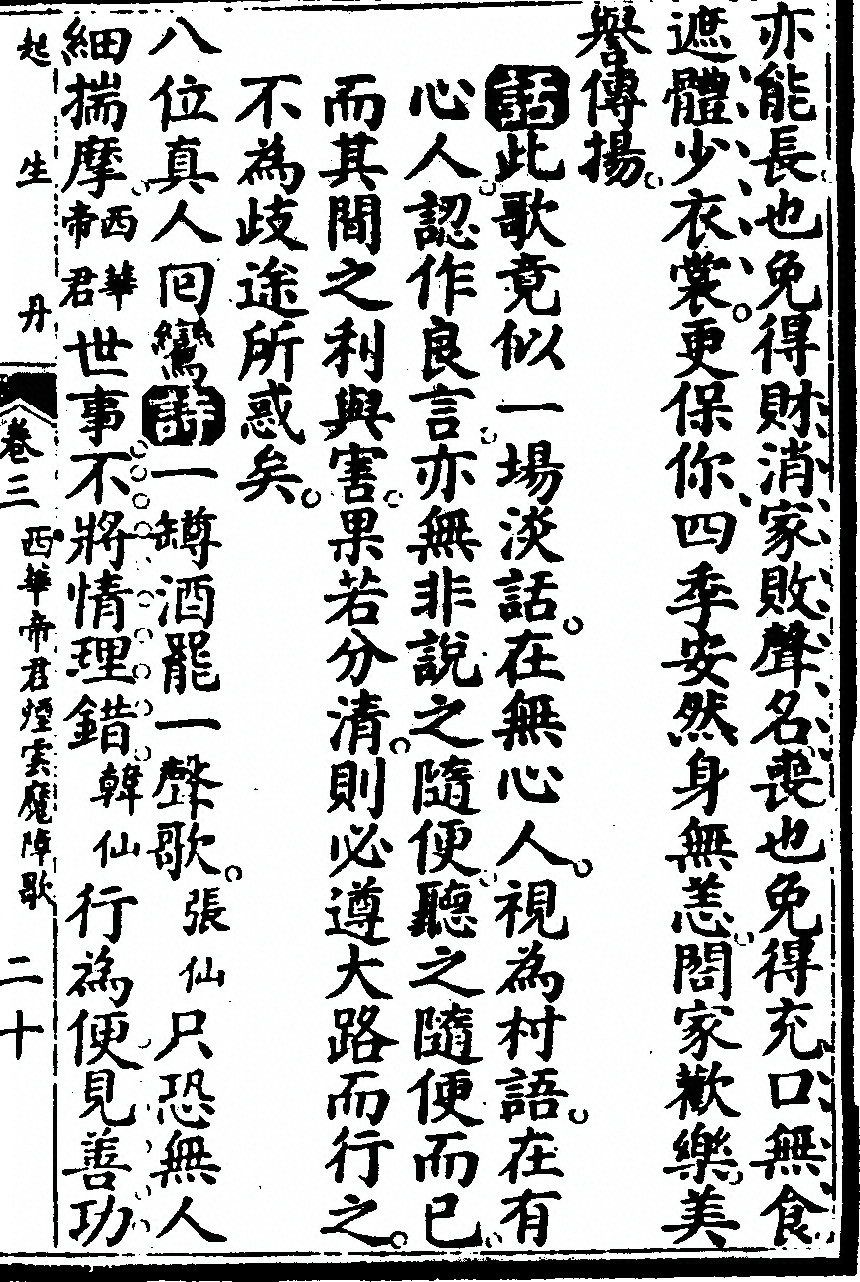 亦能長也免得財消家敗聲名喪也免得充口無食
遮體少衣裳更保你四季安然身無恙閤家歡樂美
譽傳揚
話此歌竟似一場淡話在無心人視為村語在有
心人認作良言亦無非說之隨便聽之隨便而已
而其間之利與害果若分清則必遵大路而行之
不為歧途所惑矣
八位真人囘鸞詩一罇酒罷一聲歌張仙只恐無人
細揣摩西華帝君世事不將情理錯韓仙行為便見善功
起生丹 卷三 西華帝君煙雲魔陣歌 二十